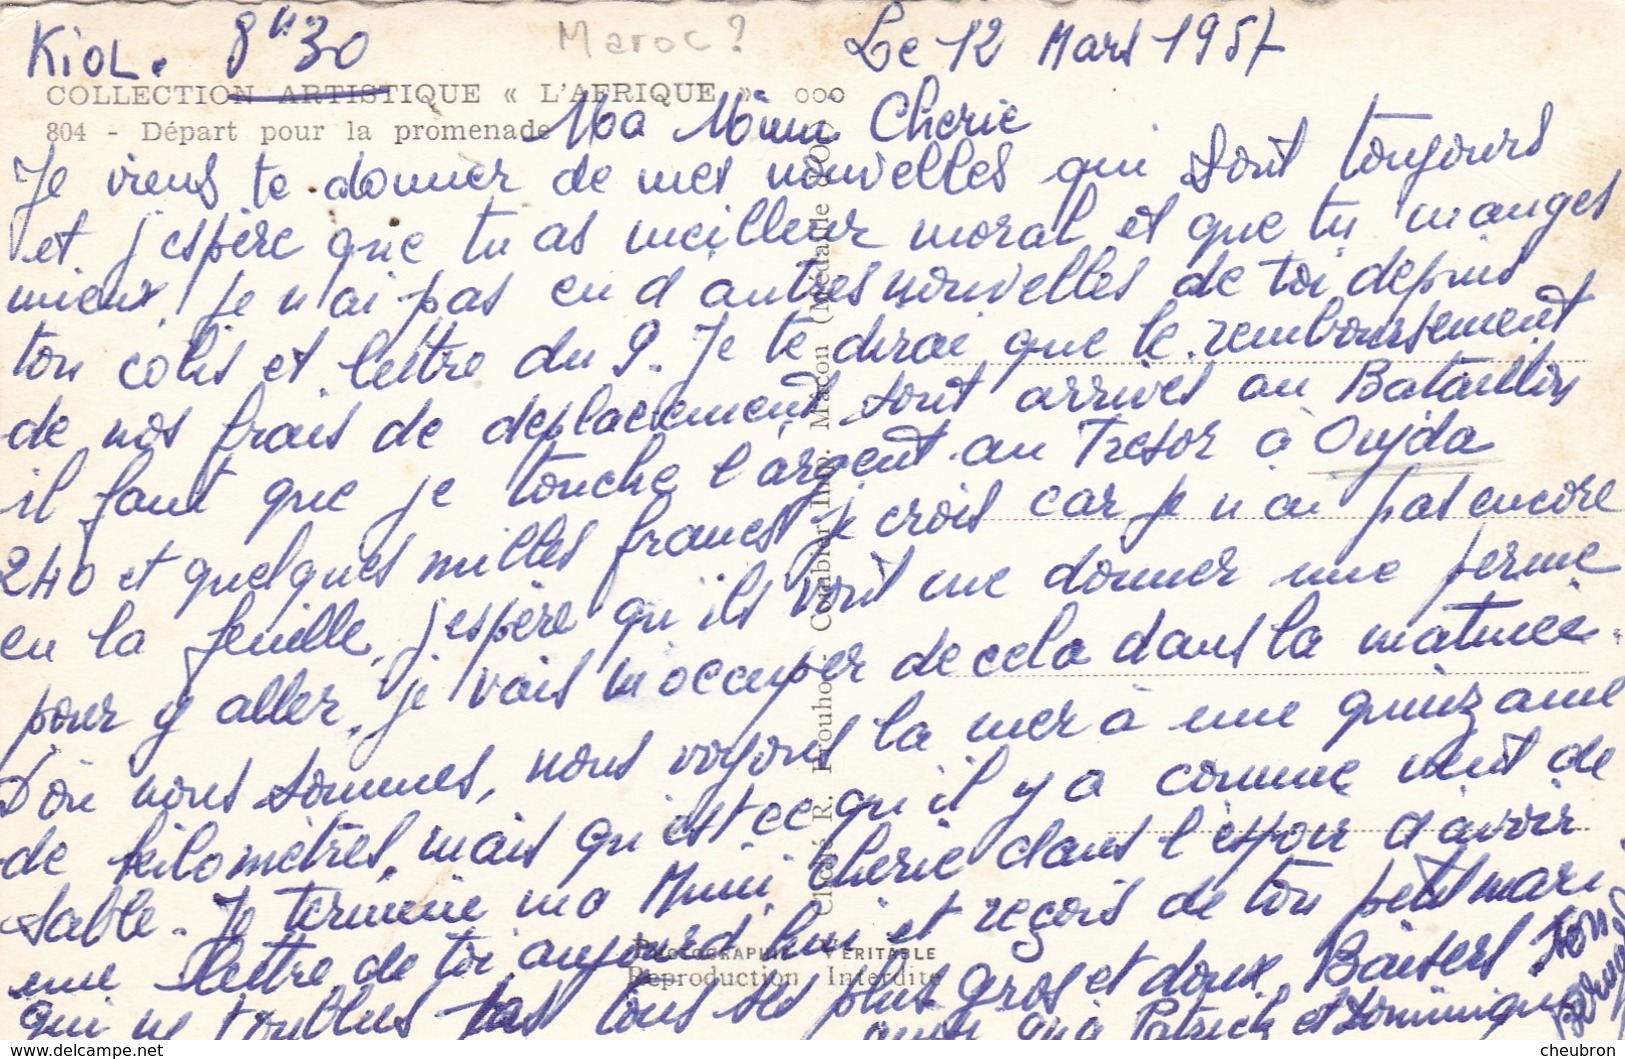 Kiol. 8h30 Maroc ? Le 12 Mars 1957
COLLECTION ARTISTIQUE « L'AFRIQUE » ooo
804 - Départ pour la promenade
Ma Mimi Cherie
Je viens te donner de mes nouvelles qui sont toujours
et j'espère que tu as meilleur moral et que tu manges
mieux, je n'ai pas eu d'autres nouvelles de toi depuis
ton colis et lettre du 9. Je te dirai que le remboursement
de nos frais de deplacement sont arrivés au Bataillon
il faut que je touche l'argent au Tresor à Oujda
240 et quelques milles francs je crois car je n'ai pas encore
eu la feuille, j'espère qu'ils vont me donner une perme
pour y aller, je vais m'occuper de cela dans la matinée.
D'où nous sommes, nous voyons la mer à une quinzaine
de kilomètres, mais qu'est ce qu'il y a comme vent de
sable. Je termine ma Mimi Cherie dans l'espoir d'avoir
une lettre de toi aujourd'hui et reçois de ton petit mari
qui ne t'oublies pas tous ses plus gros et doux Baisers
ainsi qu'à Patrick et Dominique
Cliché R. Prouho - Combier Imp. Macon (Médaille d'Or)
PHOTOGRAPHIE VERITABLE
Reproduction Interdite
cheubron
www.delcampe.net